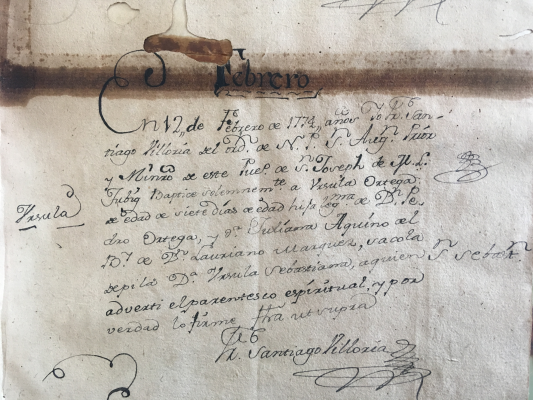 Febrero
En 12,, de Febrero de 1774,, años Yo Fr. San-
tiago Villoria del ord.n de N. P. S. Aug.n Prior
y Minro de este Pueb.o de S.n Joseph de
Baptice solemnem.te a Vrsula Ortega
Vrsula
de edad de siete dias de edad hija legma de D.n Pe
dro Ortega, y D.a Juliana Aquino del
de D.n Lauriano Marquez, sacola
de pila D.a Vrsula Sebastiana, a quien
adverti el parentesco espiritual, y por
verdad lo firme ut supra
Fr. Santiago Villoria